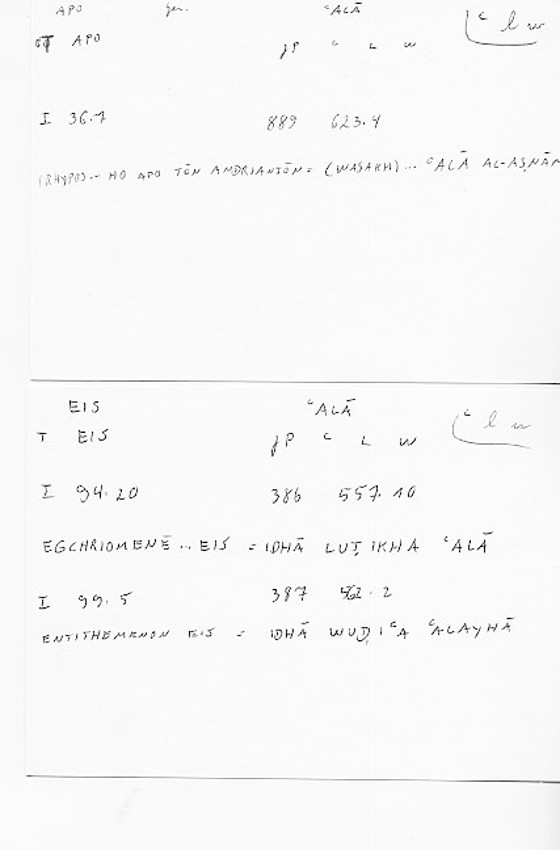 APO gen. ʿALĀ ʿ l w
GT APO JP ʿ L W
I 36.7 889 623.4
(RHYPO)... HO APO TŌN ANDRIANTŌN = (WASAKH)... ʿALĀ AL-AṢNĀM
EIS ʿALĀ ʿ l w
T EIS JP ʿ L W
I 94.20 386 557.10
EGCHRIOMENĒ ... EIS = IDHĀ LUṬIKHA ʿALĀ
I 99.5 387 562.2
ENTITHEMENON EIS = IDHĀ WUḌIʿA ʿALAYHĀ